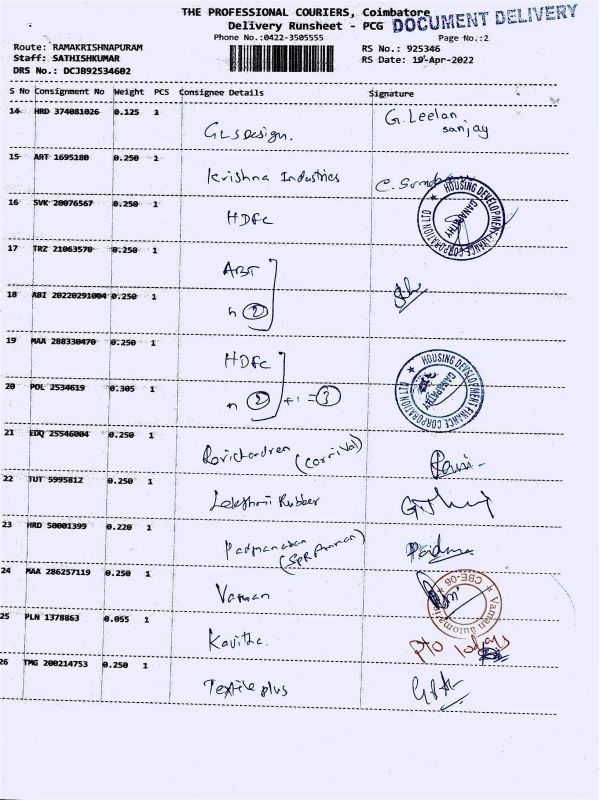 THE PROFESSIONAL COURIERS, Coimbatore
DOCUMENT DELIVERY
Delivery Runsheet - PCG
Phone No.:0422-3505555
Page No.:2
Route: RAMAKRISHNAPURAM
RS No.: 925346
Staff: SATHISHKUMAR
RS Date: 19-Apr-2022
DRS No.: DCJB92534602
S No Consignment No Weight PCS Consignee Details Signature
14 HRD 374081026 0.125 1
GLS Design.
G. Leelan
sanjay
15 ART 1695180 0.250 1
Krishna Industries
16 SVK 20076567 0.250 1
HDFC
HOUSING DEVELOPMENT FINANCE CORPORATION LTD
GANAPATHY
17 TRZ 21063570 0.250 1
ABT
18 ABI 20220291004 0.250 1
n 2
19 MAA 288330470 0.250 1
HDFC
HOUSING DEVELOPMENT FINANCE CORPORATION LTD
GANAPATHY
20 POL 2534619 0.305 1
n 2 +1 = 3
21 EDQ 25546004 0.250 1
Ravichandren (Carnival)
22 TUT 5995812 0.250 1
Lakshmi Rubber
23 HRD 50001399 0.220 1
Padma
24 MAA 286257119 0.250 1
Vaman
CBE-06
Vaman automa
25 PLN 1378863 0.055 1
Kavitha.
PTO
26 TMG 200214753 0.250 1
Textile plus